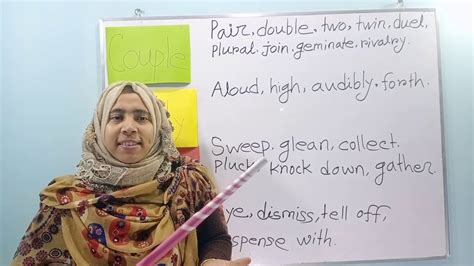 Couple
Pair, double, two, twin, duel,
Plural, join, geminate, rivalry.
Aloud, high, audibly, forth.
Sweep, glean, collect.
Pluck, knock down, gather.
dismiss, tell off,
with.